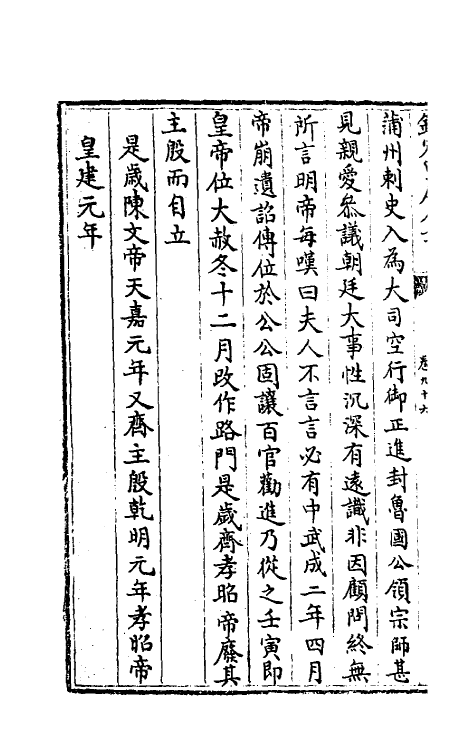 卷九十六
蒲州刺史入為大司空行御正進封魯國公領宗師甚
見親愛叅議朝廷大事性沉深有遠識非因顧問終無
所言明帝每嘆曰夫人不言言必有中武成二年四月
帝崩遺詔傳位於公公固讓百官勸進乃從之壬寅即
皇帝位大赦冬十二月改作路門是歲齊孝昭帝廢其
主殷而自立
是歲陳文帝天嘉元年又齊主殷乾明元年孝昭帝
皇建元年